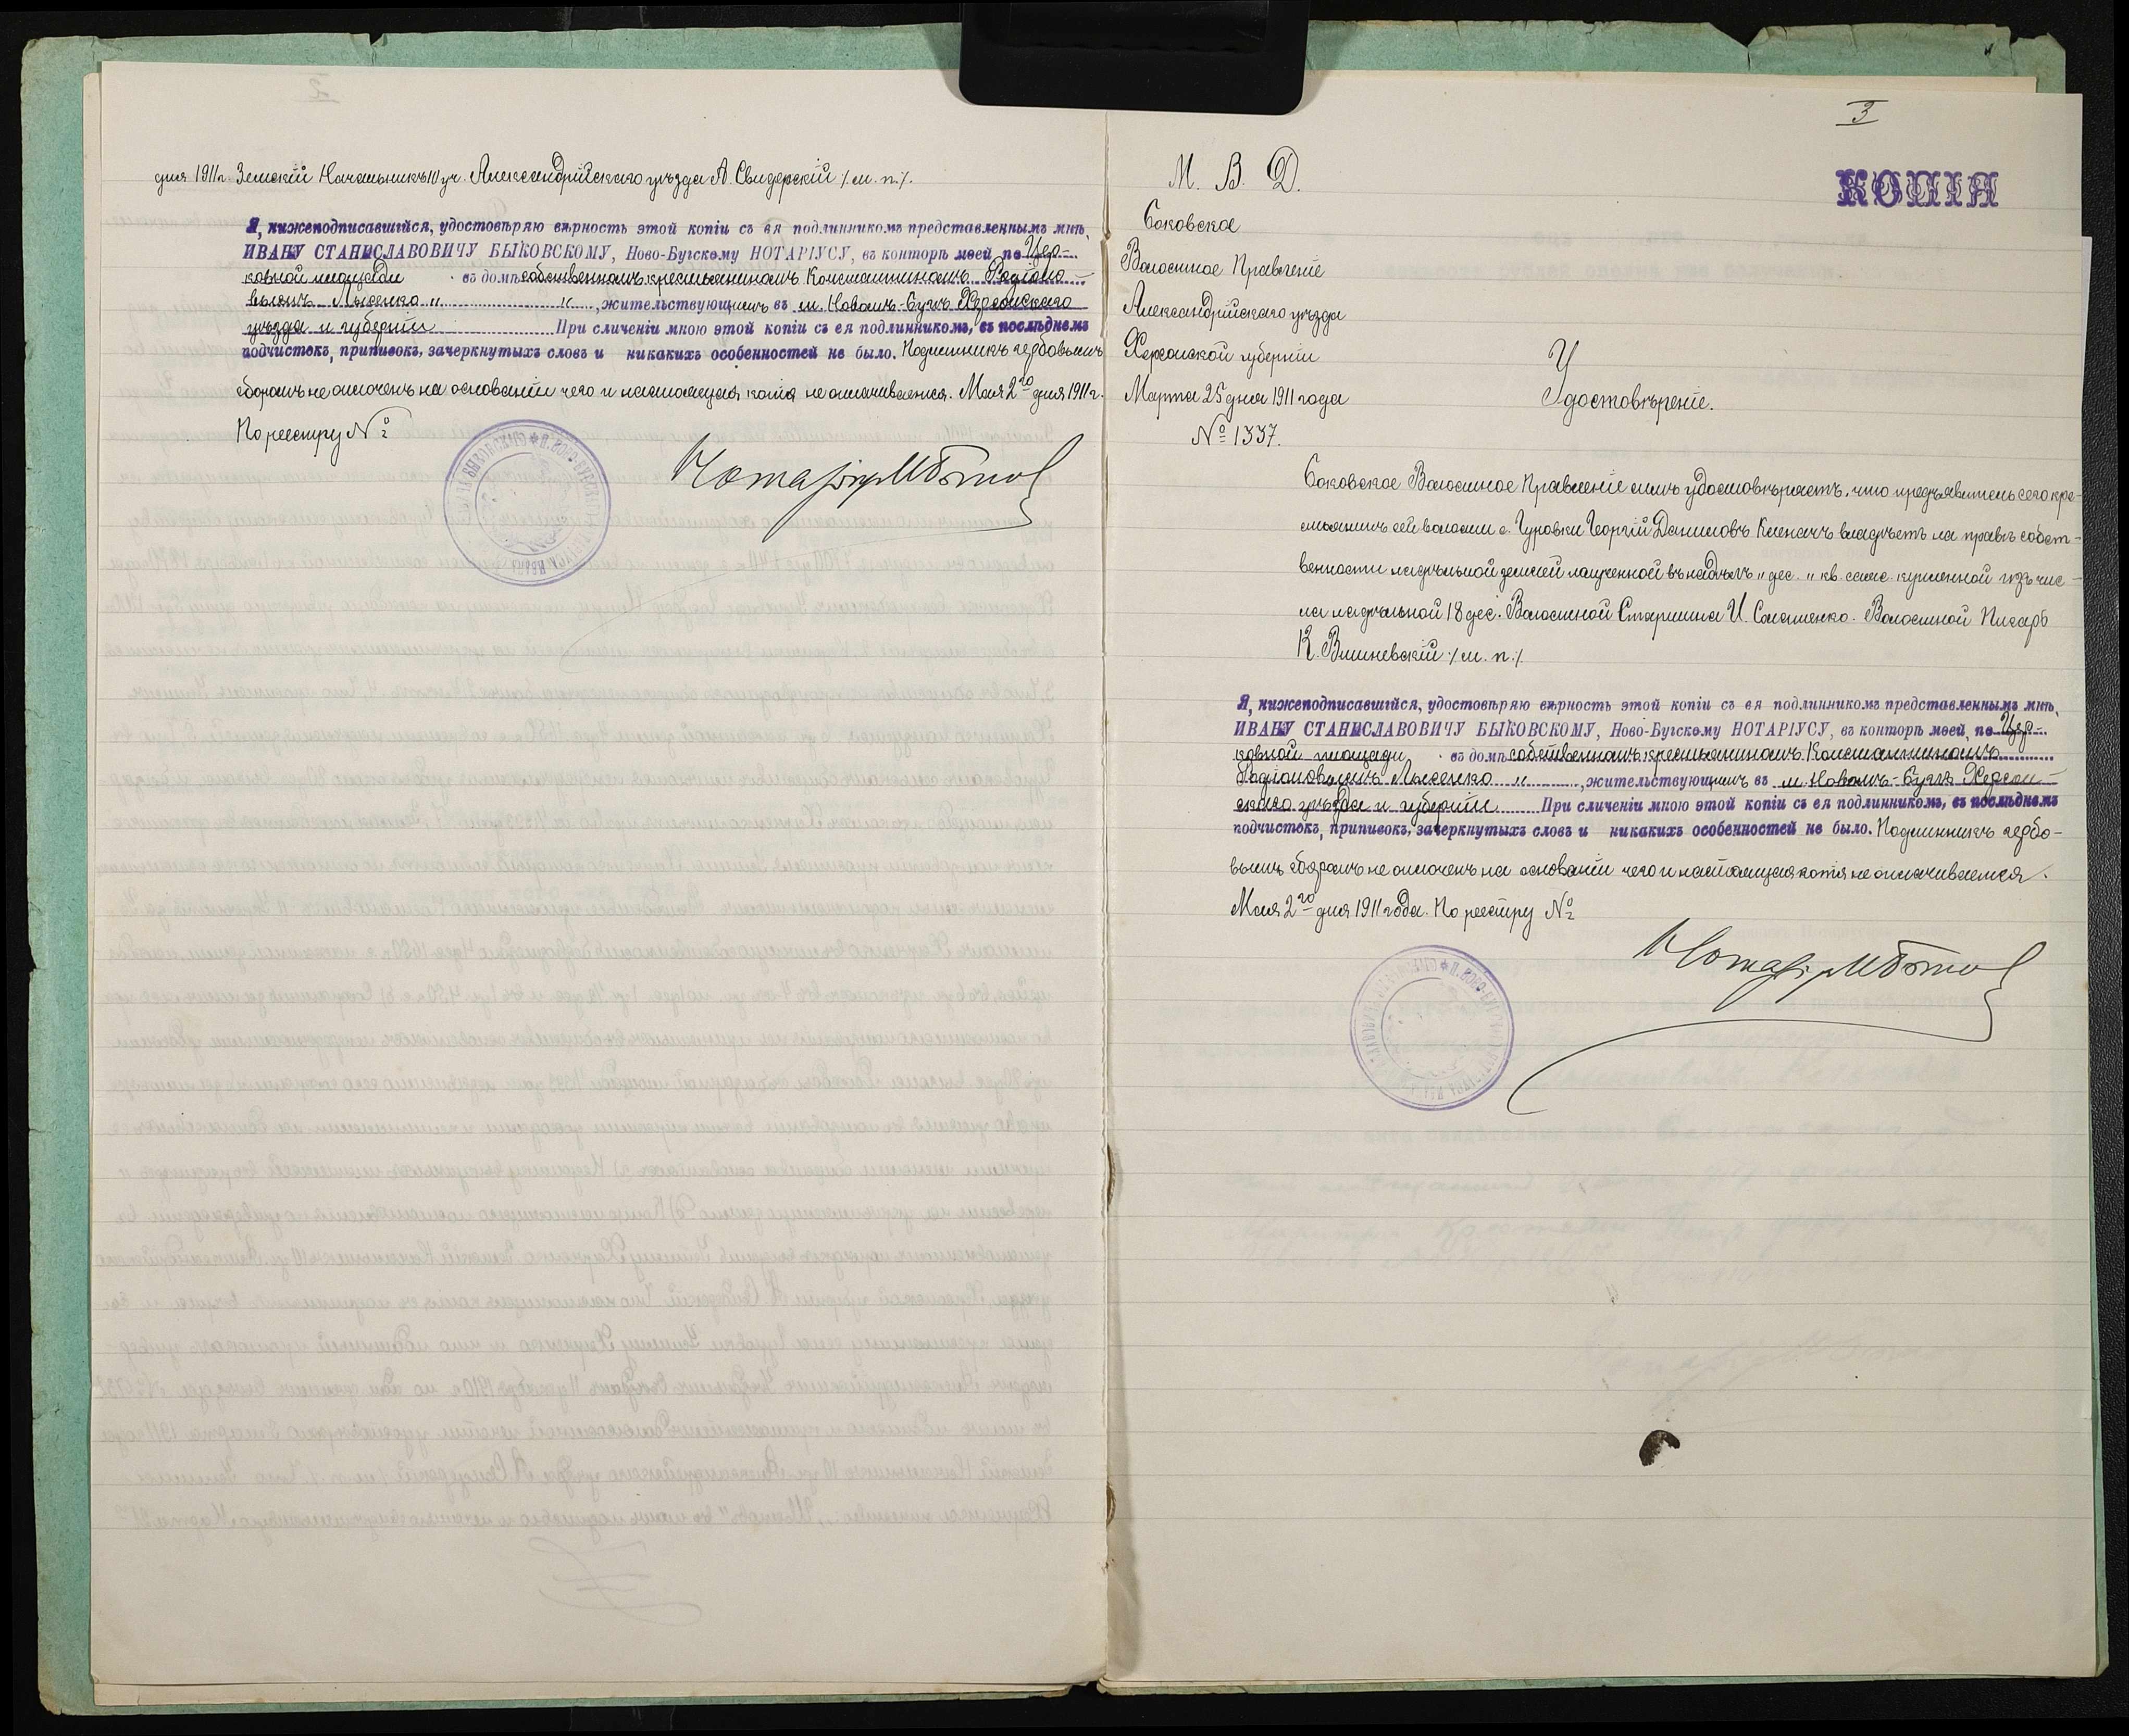 дня 1911 г. Земскій Начальникъ 10 уч. Александрійскаго уѣзда А. Свидерскій /м. п./.
Я, нижеподписавшійся, удостовѣряю вѣрность этой копіи съ ея подлинникомъ представленнымъ мнѣ,
ИВАНУ СТАНИСЛАВОВИЧУ БЫКОВСКОМУ, Ново-Бугскому НОТАРІУСУ, въ конторѣ моей по Цер-
ковной площади въ домѣ собственномъ крестьяниномъ Константиномъ Родіоно-
вымъ Лысенко " " , жительствующимъ въ м. Новомъ-Бугѣ Херсонскаго
уѣзда и губерніи При сличеніи мною этой копіи съ ея подлинникомъ, въ послѣднемъ
подчистокъ, приписокъ, зачеркнутыхъ словъ и никакихъ особенностей не было. Подлинникъ гербовымъ
сборомъ не оплоченъ на основаніи чего и настоящая копія не оплачивается. Мая 2го дня 1911 г.
По реестру №
Нотаріусъ
3
КОПІЯ
М. В. Д.
Боковское
Волостное Правленіе
Александрійскаго уѣзда
Херсонской губерніи
Марта 25 дня 1911 года
№ 1337.
Удостовѣреніе.
Боковское Волостное Правленіе симъ удостовѣряетъ, что предъявитель сего кре-
стьянинъ сей волости с. Гуровки Георгій Даниловъ Клепачъ владѣетъ на правѣ собст-
венности надѣльной землей полученной въ надѣлъ " дес. " кв. саж. купленной изъ чис-
ла надѣльной 18 дес. Волостной Старшина И. Соломенко. Волостной Писарь
К. Вишневскій /м. п./
Я, нижеподписавшійся, удостовѣряю вѣрность этой копіи съ ея подлинникомъ представленнымъ мнѣ,
ИВАНУ СТАНИСЛАВОВИЧУ БЫКОВСКОМУ, Ново-Бугскому НОТАРІУСУ, въ конторѣ моей, по Цер-
ковной площади въ домѣ собственномъ крестьяниномъ Константиномъ
Родіоновымъ Лысенко " , жительствующимъ въ м. Новомъ-Бугѣ Херсон-
скаго уѣзда и губерніи При сличеніи мною этой копіи съ ея подлинникомъ, въ послѣднемъ
подчистокъ, приписокъ, зачеркнутыхъ словъ и никакихъ особенностей не было. Подлинникъ гербо-
вымъ сборомъ не оплоченъ на основаніи чего и настоящая копія не оплачивается.
Мая 2го дня 1911 года. По реестру №
Нотаріусъ